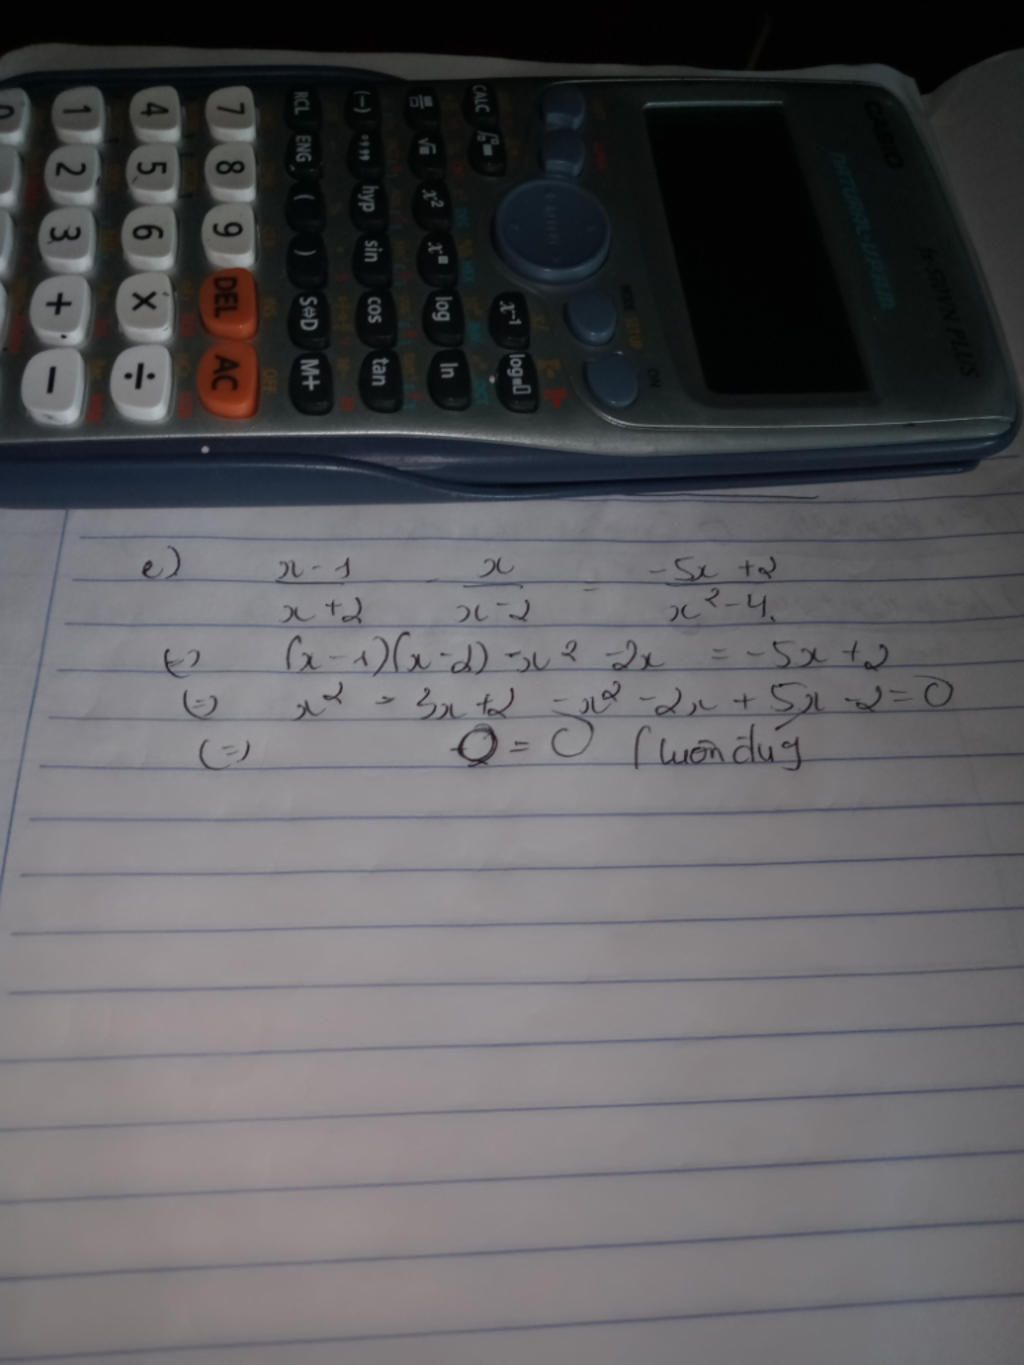 CASIO
fx-570VN PLUS
NATURAL-V.P.A.M.
CALC
ON
x⁻¹
log
√
x²
x
log
ln
(-)
hyp
sin
cos
tan
RCL
ENG
(
)
S⇔D
M+
7
8
9
DEL
AC
OFF
4
5
6
×
÷
1
2
3
+
−
0
e) x-1/x+2 - x/x-2 = -5x+2/x²-4.
(=) (x-1)(x-2) -x² -2x = -5x+2
(=) x² - 3x+2 -x² -2x + 5x -2=0
(=) 0 = 0 (luôn đúg